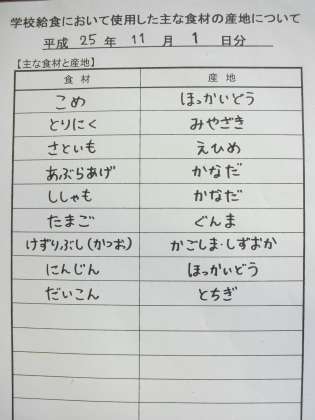 学校給食において使用した主な食材の産地について
平成 25 年 11 月 1 日分
【主な食材と産地】
食材 産地
こめ ほっかいどう
とりにく みやざき
さといも えひめ
あぶらあげ かなだ
ししゃも かなだ
たまご ぐんま
けずりぶし(かつお) かごしま・しずおか
にんじん ほっかいどう
だいこん とちぎ